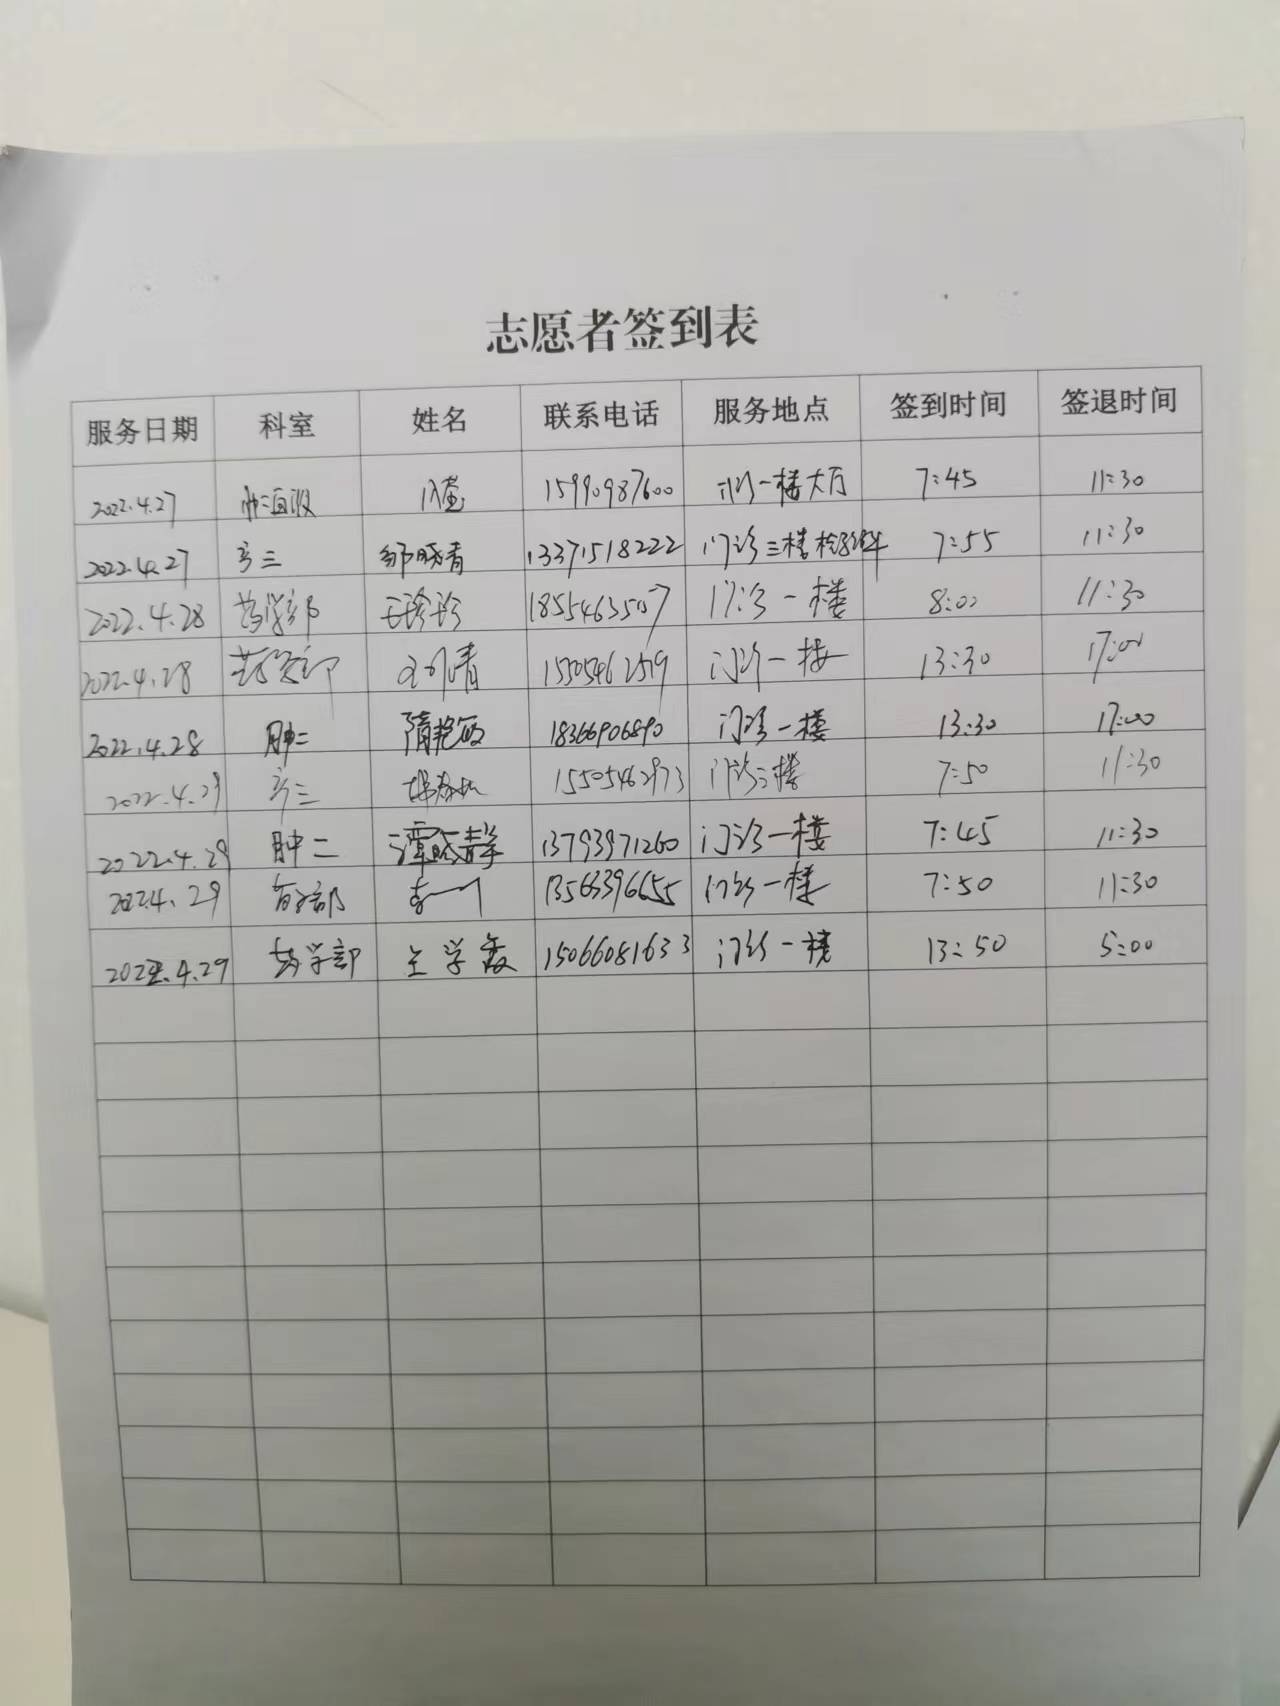 志愿者签到表
服务日期 科室 姓名 联系电话 服务地点 签到时间 签退时间
2022.4.27 15990987600 门诊一楼大厅 7:45 11:30
2022.4.27 产三 邹晓青 13371518222 门诊三楼 7:55 11:30
2022.4.28 药学部 王珍珍 18554635107 门诊一楼 8:00 11:30
2022.4.28 药学部 1505462519 门诊一楼 13:30 17:00
2022.4.28 肿二 隋艳 18366906890 门诊一楼 13:30 17:00
2022.4.29 产三 15505462973 门诊三楼 7:50 11:30
2022.4.29 肿二 谭晓静 13793971260 门诊一楼 7:45 11:30
2022.4.29 李一 13563396655 门诊一楼 7:50 11:30
2022.4.29 药学部 王学 15066081633 门诊一楼 13:50 5:00